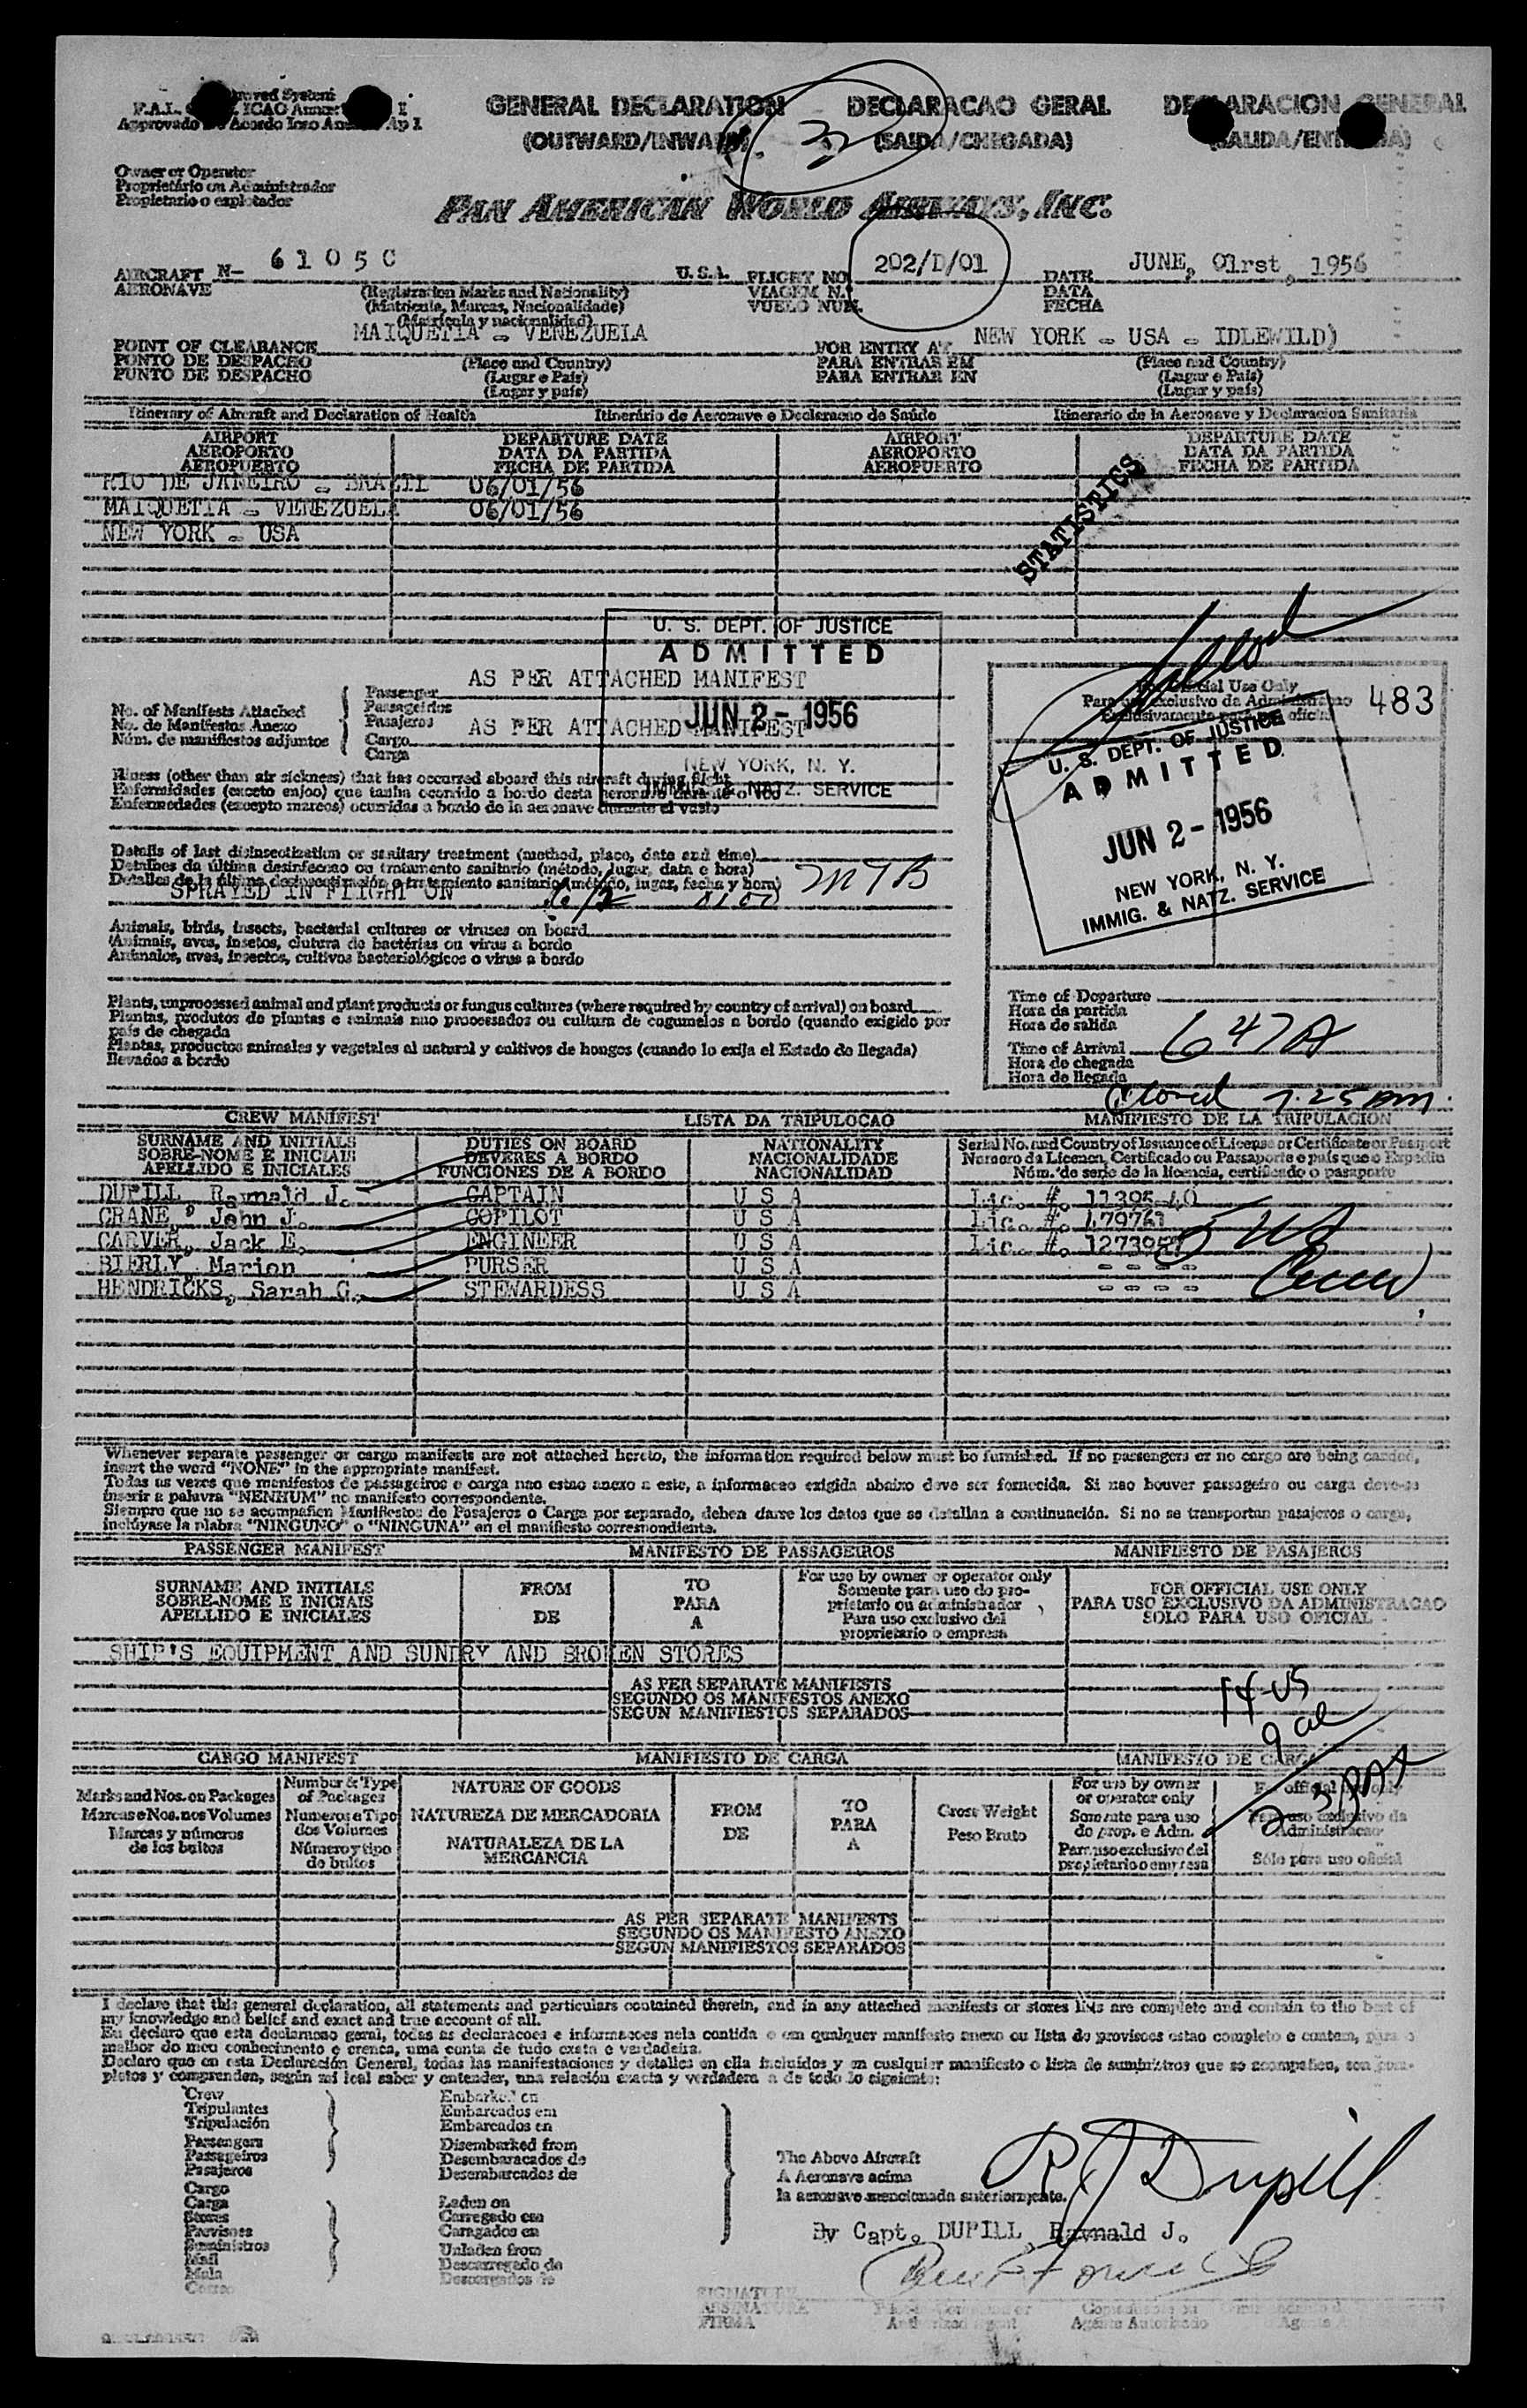 Approved System
F.A.L. ICAO Annex I
Approvado Acordo Icao Ap I
GENERAL DECLARATION
(OUTWARD/INWARD)
DECLARACAO GERAL
(SAIDA/CHEGADA)
DECLARACION GENERAL
(SALIDA/ENTRADA)
Owner or Operator
Proprietário ou Administrador
Propietario o explotador
PAN AMERICAN WORLD AIRWAYS, INC.
AIRCRAFT N- 6105C U.S.A. FLIGHT NO. 202/D/01 DATE JUNE, 01rst, 1956
AERONAVE (Registration Marks and Nationality) VIAGEM N.º DATA
(Matricula, Marcas, Nacionalidade) VUELO NUM. FECHA
(Matricula y nacionalidad)
POINT OF CLEARANCE MAIQUETIA - VENEZUELA FOR ENTRY AT NEW YORK - USA - IDLEWILD)
PONTO DE DESPACHO (Place and Country) PARA ENTRAR EM (Place and Country)
PUNTO DE DESPACHO (Lugar e País) PARA ENTRAR EN (Lugar e País)
(Lugar y país) (Lugar y país)
Itinerary of Aircraft and Declaration of Health Itinerário de Aeronave e Declaracao de Saúde Itinerario de la Aeronave y Declaracion Sanitaria
AIRPORT DEPARTURE DATE AIRPORT DEPARTURE DATE
AEROPORTO DATA DA PARTIDA AEROPORTO DATA DA PARTIDA
AEROPUERTO FECHA DE PARTIDA AEROPUERTO FECHA DE PARTIDA
RIO DE JANEIRO - BRAZIL 06/01/56
MAIQUETIA - VENEZUELA 06/01/56
NEW YORK - USA
STATISTICS
U. S. DEPT. OF JUSTICE
ADMITTED
JUN 2 - 1956
NEW YORK, N. Y.
IMMIG. & NATZ. SERVICE
No. of Manifests Attached
No. de Manifestos Anexo
Núm. de manifiestos adjuntos
Passenger AS PER ATTACHED MANIFEST
Passageiros
Pasajeros
Cargo AS PER ATTACHED MANIFEST
Carga
Official Use Only
Para uso exclusivo da Administracao
483
U. S. DEPT. OF JUSTICE
ADMITTED
JUN 2 - 1956
NEW YORK, N. Y.
IMMIG. & NATZ. SERVICE
Illness (other than air sickness) that has occurred aboard this aircraft during flight
Enfermidades (exceto enjoo) que tenha ocorrido a bordo desta aeronave durante o voo
Enfermedades (excepto mareos) ocurridas a bordo de la aeronave durante el vuelo
Details of last disinsectization or sanitary treatment (method, place, date and time)
Detalhes da última desinfeccao ou tratamento sanitario (método, lugar, data e hora)
Detalles de la última desinsectización o tratamiento sanitario (método, lugar, fecha y hora)
SPRAYED IN FLIGHT ON 6/2 0100 MTB
Animals, birds, insects, bacterial cultures or viruses on board
Animais, aves, insetos, clutura de bactérias ou virus a bordo
Animales, aves, insectos, cultivos bacteriológicos o virus a bordo
Plants, unprocessed animal and plant products or fungus cultures (where required by country of arrival) on board
Plantas, produtos de plantas e animais nao processados ou cultura de cogumelos a bordo (quando exigido por
país de chegada
Plantas, productos animales y vegetales al natural y cultivos de hongos (cuando lo exija el Estado de llegada)
llevados a bordo
Time of Departure
Hora da partida
Hora de salida
Time of Arrival 647A
Hora de chegada
Hora de llegada
Closed 7.25 pm.
CREW MANIFEST LISTA DA TRIPULOCAO MANIFIESTO DE LA TRIPULACION
SURNAME AND INITIALS DUTIES ON BOARD NATIONALITY Serial No. and Country of Issuance of License or Certificate or Passport
SOBRE-NOME E INICIAIS DEVERES A BORDO NACIONALIDADE Numero da Licenca, Certificado ou Passaporte e país que o Expediu
APELLIDO E INICIALES FUNCIONES DE A BORDO NACIONALIDAD Núm. de serie de la licencia, certificado o pasaporte
DUPILL, Raymald J. CAPTAIN U S A Lic. #. 11395-40
CRANE, John J. COPILOT U S A Lic. #. 479761
CARVER, Jack E. ENGINEER U S A Lic. #. 1273957
BIERLY, Marion PURSER U S A - - - -
HENDRICKS, Sarah G. STEWARDESS U S A - - - -
5 US
Crew
Whenever separate passenger or cargo manifests are not attached hereto, the information required below must be furnished. If no passengers or no cargo are being carried,
insert the word "NONE" in the appropriate manifest.
Todas as vezes que manifestos de passageiros e carga nao estao anexo a este, a informacao exigida abaixo deve ser fornecida. Si nao houver passageiro ou carga deve-se
inserir a palavra "NENHUM" no manifesto correspondente.
Siempre que no se acompañen Manifiestos de Pasajeros o Carga por separado, deben darse los datos que se detallan a continuación. Si no se transportan pasajeros o carga,
inclúyase la plabra "NINGUNO" o "NINGUNA" en el manifiesto correspondiente.
PASSENGER MANIFEST MANIFESTO DE PASSAGEIROS MANIFIESTO DE PASAJEROS
SURNAME AND INITIALS FROM TO For use by owner or operator only FOR OFFICIAL USE ONLY
SOBRE-NOME E INICIAIS PARA Somente para uso do pro- PARA USO EXCLUSIVO DA ADMINISTRACAO
APELLIDO E INICIALES DE A prietario ou administrador SOLO PARA USO OFICIAL
Para uso exclusivo del
proprietario o empresa
SHIP'S EQUIPMENT AND SUNDRY AND BROKEN STORES
AS PER SEPARATE MANIFESTS
SEGUNDO OS MANIFESTOS ANEXO
SEGUN MANIFIESTOS SEPARADOS
14-US
9 al
23 PAX
CARGO MANIFEST MANIFIESTO DE CARGA MANIFESTO DE CARGA
Marks and Nos. on Packages Number & Type of Packages NATURE OF GOODS FROM TO Gross Weight For use by owner or operator only For official use only
Marcas e Nos. nos Volumes Numeros e Tipo dos Volumes NATUREZA DE MERCADORIA DE PARA Peso Bruto Somente para uso do prop. e Adm. Para uso exclusivo da Administracao
Marcas y números de los bultos Número y tipo de bultos NATURALEZA DE LA MERCANCIA A Para uso exclusivo del propietario o empresa Sólo para uso oficial
AS PER SEPARATE MANIFESTS
SEGUNDO OS MANIFESTO ANEXO
SEGUN MANIFIESTOS SEPARADOS
I declare that this general declaration, all statements and particulars contained therein, and in any attached manifests or stores lists are complete and contain to the best of
my knowledge and belief and exact and true account of all.
Eu declaro que esta declaracao geral, todas as declaracoes e informacoes nela contida e em qualquer manifesto anexo ou lista de provisoes estao completo e contem, para o
melhor do meu conhecimento e crenca, uma conta de tudo exata e verdadeira.
Declaro que en esta Declaración General, todas las manifestaciones y detalles en ella incluidos y en cualquier manifiesto o lista de suministros que se acompañen, son com-
pletos y comprenden, según mi leal saber y entender, una relación exacta y verdadera a de todo lo siguiente:
Crew Embarked on
Tripulantes Embarcados em
Tripulación Embarcados en
Passengers Disembarked from
Passageiros Desembaracados de
Pasajeros Desembarcados de
Cargo
Carga Laden on
Stores Carregado em
Provisoes Cargados en
Suministros Unladen from
Mail Descarregado de
Mala Descargados de
Correo
The Above Aircraft
A Aeronave acima
la aeronave mencionada anteriormente.
R J Dupill
By Capt. DUPILL, Raymald J.
SIGNATURE
ASSINATURA
FIRMA
Agente Autorizado